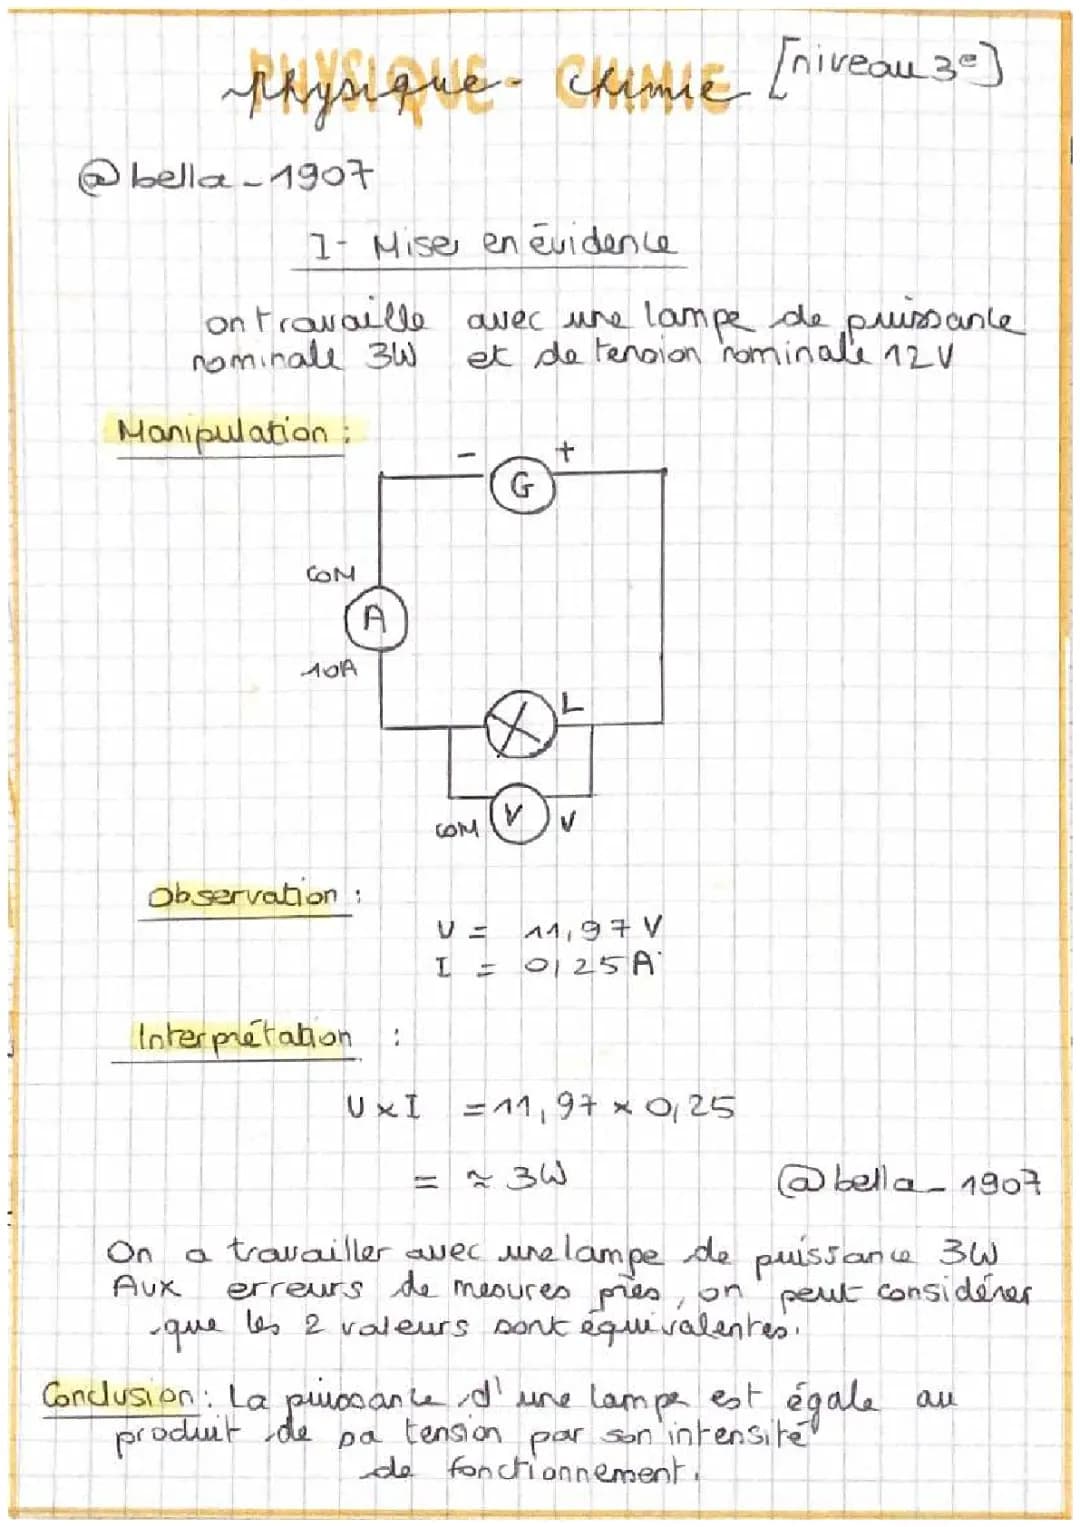 physique - chimie [niveau 3e]
PHYSIQUE CHIMIE
@bella_1907
I- Mises en évidence
on travaille avec une lampe de puissance
nominale 3W et de tension nominale 12V
Manipulation :
- +
G
COM
A
10A
L
COM V V
Observation :
U = 11,97 V
I = 0,25 A
Interprétation :
U x I = 11,97 x 0,25
= ≈ 3W
@bella_1907
On a travailler avec une lampe de puissance 3W
Aux erreurs de mesures près, on peut considérer
que les 2 valeurs sont équivalentes.
Conclusion : La puissance d'une lampe est égale au
produit de sa tension par son intensité
de fonctionnement.